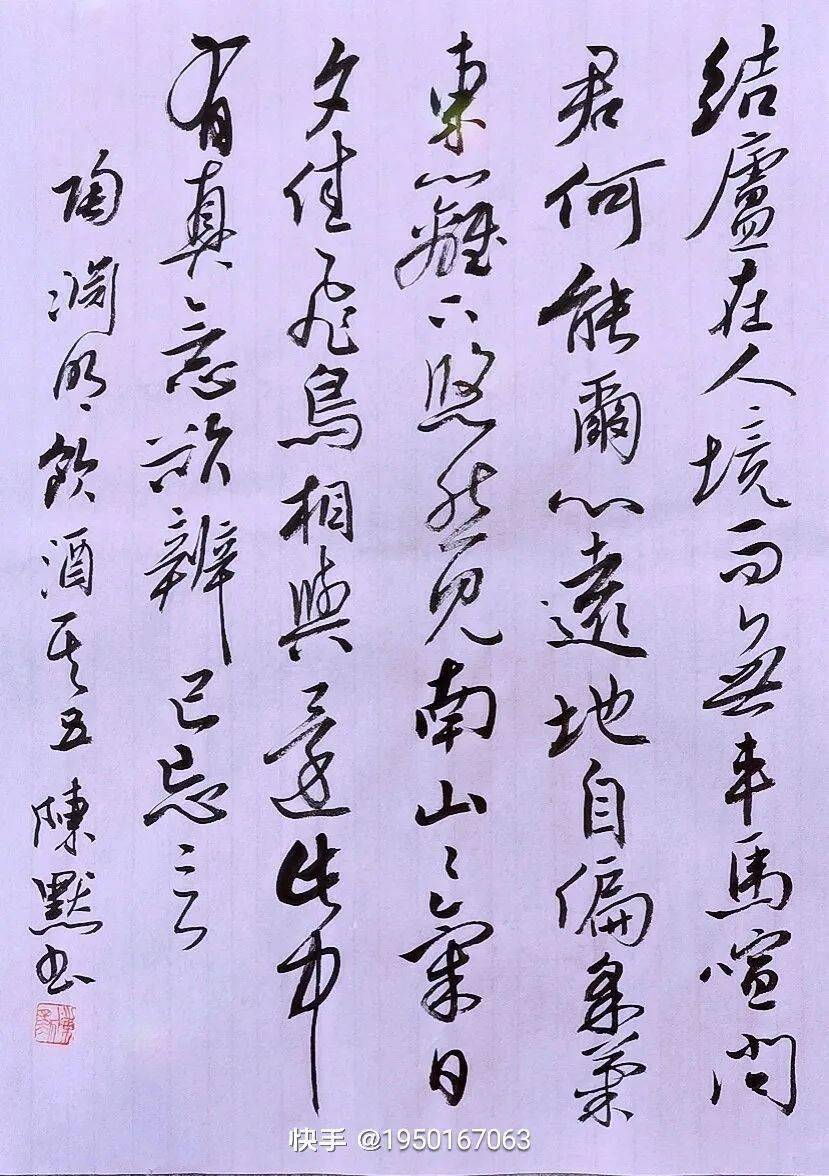 結廬在人境而無車馬喧問
君何能爾心遠地自偏采菊
東籬下悠然見南山山氣日
夕佳飛鳥相與還此中
有真意欲辨已忘言
陶淵明飲酒其五 陳默書
快手 @1950167063